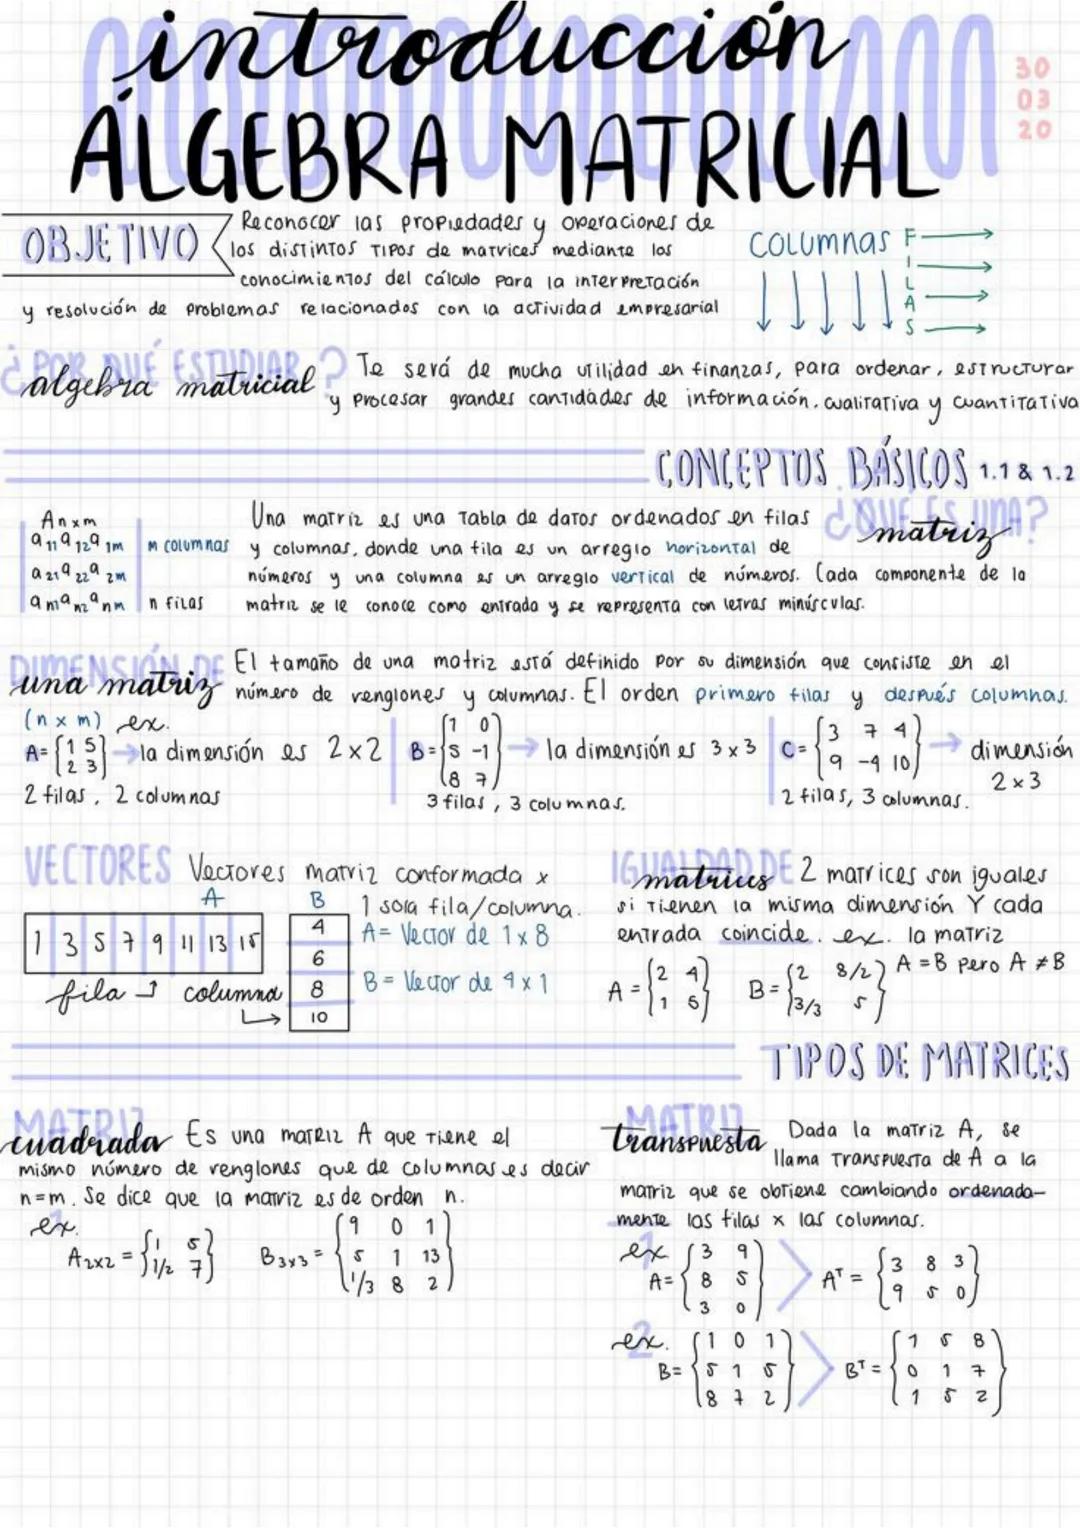 introducción
ÁLGEBRA MATRICIAL
30
03
20
OBJETIVO
Reconocer las propiedades y operaciones de
los distintos tipos de matrices mediante los
conocimientos del cálculo para la interpretación
y resolución de problemas relacionados con la actividad empresarial
COLUMNAS
FILAS
¿POR QUÉ ESTUDIAR?
algebra matricial
Te será de mucha utilidad en finanzas, para ordenar, estructurar
y procesar grandes cantidades de información, cualitativa y cuantitativa
CONCEPTOS BÁSICOS 1.1 & 1.2
¿QUÉ ES UNA?
matriz
Anxm
a11 a12 a1m
a21 a22 a2m
am an2 anm
m columnas
n filas
Una matriz es una tabla de datos ordenados en filas
y columnas, donde una fila es un arreglo horizontal de
números y una columna es un arreglo vertical de números. Cada componente de la
matriz se le conoce como entrada y se representa con letras minúsculas.
DIMENSIÓN DE
una matriz
El tamaño de una matriz está definido por su dimensión que consiste en el
número de renglones y columnas. El orden primero filas y después columnas.
(n x m) ex.
A= 1 5
2 3
la dimensión es 2x2
2 filas, 2 columnas
B= 1 0
5 -1
8 7
la dimensión es 3x3
3 filas, 3 columnas.
C= 3 7 4
9 -4 10
dimensión
2x3
2 filas, 3 columnas.
VECTORES
Vectores matriz conformada x
1 sola fila/columna.
A
1 3 5 7 9 11 13 15
fila
columna
B
4
6
8
10
A= Vector de 1x8
B= Vector de 4x1
IGUALDAD DE
matrices
2 matrices son iguales
si tienen la misma dimensión Y cada
entrada coincide. ex. la matriz
A=B pero A≠B
A= 2 4
1 5
B= 2 8/2
3/3 5
TIPOS DE MATRICES
MATRIZ
cuadrada
Es una matriz A que tiene el
mismo número de renglones que de columnas es decir
n=m. Se dice que la matriz es de orden n.
ex.
A2x2 = 1 5
1/2 7
B3x3 = 9 0 1
5 1 13
1/3 8 2
MATRIZ
transpuesta
Dada la matriz A, se
llama transpuesta de A a la
matriz que se obtiene cambiando ordenada-
mente las filas x las columnas.
1
ex
A= 3 9
8 5
3 0
AT = 3 8 3
9 5 0
2
ex.
B= 1 0 1
5 1 5
8 7 2
BT = 1 5 8
0 1 7
1 5 2